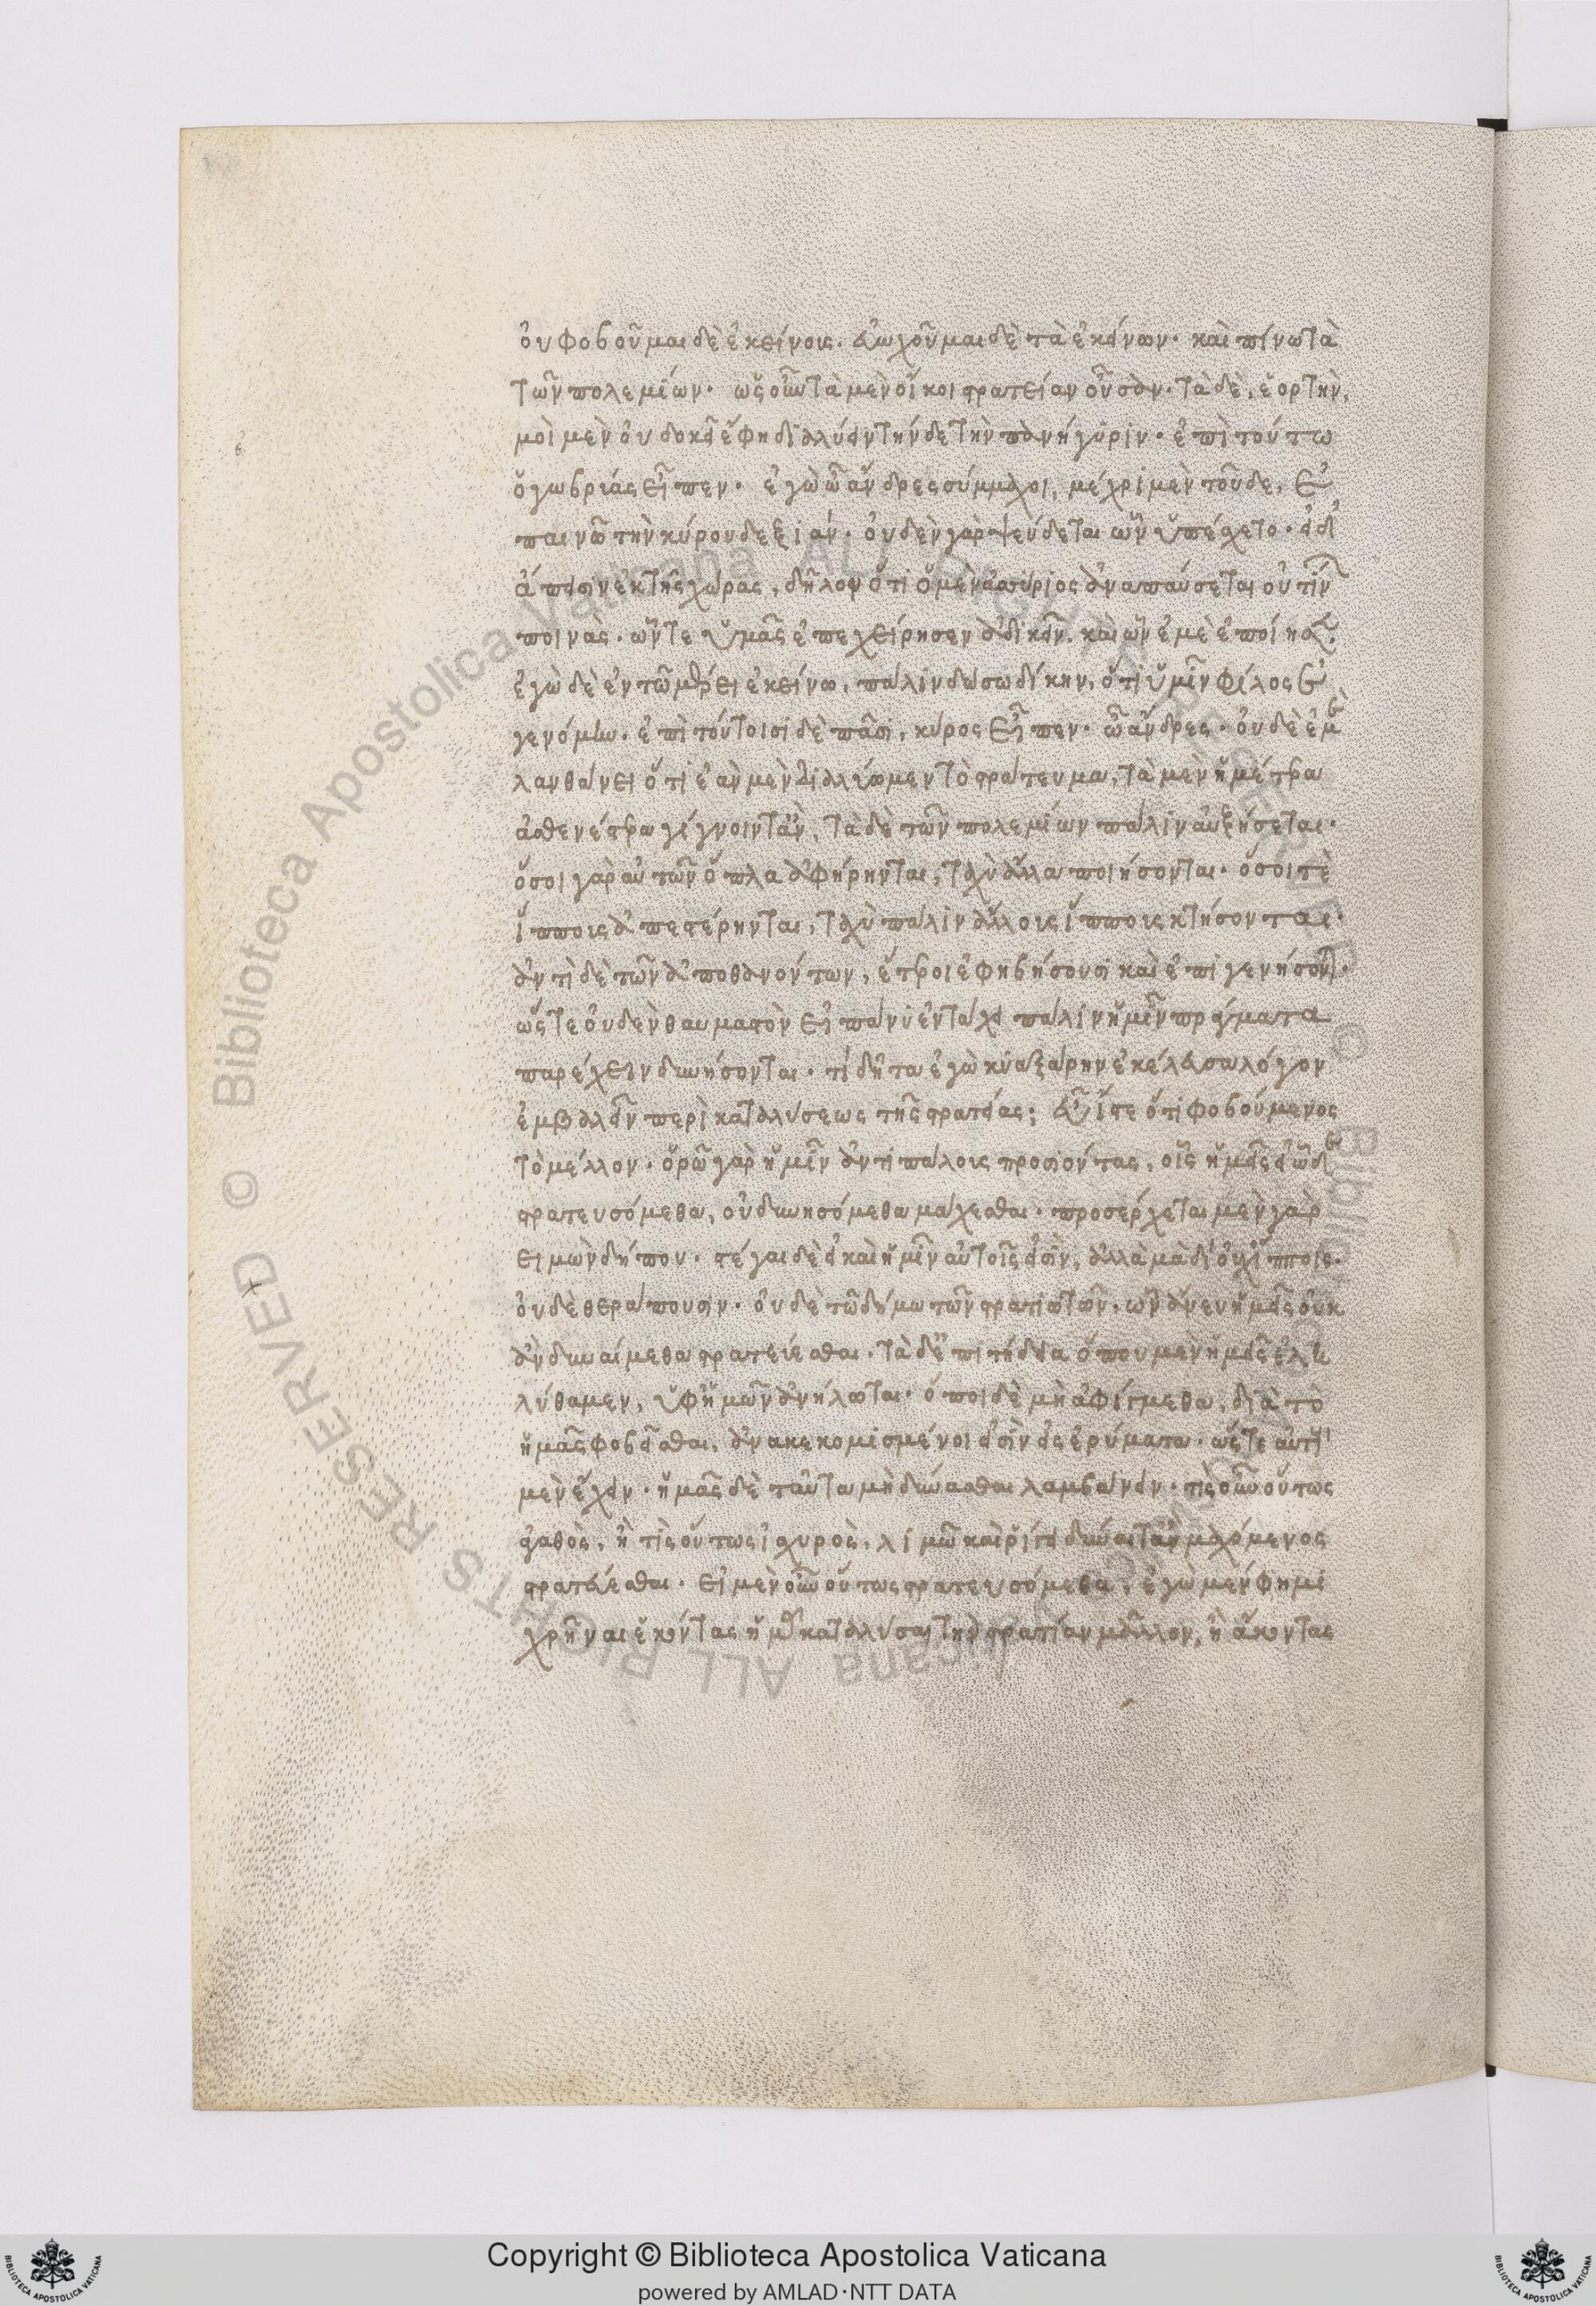 οὐ φοβοῦμαι δὲ ἐκείνους. εὐωχοῦμαι δὲ τὰ ἐκείνων. καὶ πίνω τὰ
τῶν πολεμίων. ὡς οὖν τὰ μὲν οἴκοι στρατείαν οὖσαν. τὰ δὲ, ἑορτὴν,
μοὶ μὲν οὐ δοκεῖ ἔφη διαλύειν τήνδε τὴν πανήγυριν. ἐπὶ τούτω
ὁ γωβρύας εἶπεν. ἐγὼ ὦ ἄνδρες σύμμαχοι, μέχρι μὲν τοῦδε, ἐ
παινῶ τὴν κύρου δεξιάν. οὐδὲν γὰρ ψεύδεται ὧν ὑπέσχετο. εἰ δ'
ἄπεισιν ἐκ τῆς χώρας, δῆλον ὅτι ὁ μὲν ἀσσύριος ἀναπαύσεται οὐ τίνων
ποινὰς. ὧν τε ὑμᾶς ἐπεχείρησεν ἀδικεῖν. καὶ ὧν ἐμὲ ἐποίησεν.
ἐγὼ δὲ ἐν τῶ μέρει ἐκείνω, πάλιν δώσω δίκην, ὅτι ὑμῖν φίλος ἐ
γενόμην. ἐπὶ τούτοισι δὲ πᾶσι, κύρος εἶπεν. ὦ ἄνδρες. οὐδὲ ἐμὲ
λανθάνει ὅτι ἐὰν μὲν διαλύωμεν τὸ στράτευμα, τὰ μὲν ἡμέτερα
ἀσθενέστερα γίγνοιντ' ἂν, τὰ δὲ τῶν πολεμίων πάλιν αὐξήσεται.
ὅσοι γὰρ αὐτῶν ὅπλα ἀφήρηνται, ταχὺ ἄλλα ποιήσονται. ὅσοι τὲ
ἵππους ἀπεστέρηνται, ταχὺ πάλιν ἄλλους ἵππους κτήσονται.
ἀντὶ δὲ τῶν ἀποθανόντων, ἕτεροι ἐφηβήσουσι καὶ ἐπιγενήσονται.
ὥστε οὐδὲν θαυμαστὸν εἰ πάνυ ἐν τάχει πάλιν ἡμῖν πράγματα
παρέχειν δυνήσονται. τί δῆτα ἐγὼ κυαξάρην ἐκέλευσα λόγον
ἐμβαλεῖν περὶ καταλύσεως τῆς στρατείας; εὖ ἴστε ὅτι φοβούμενος
τὸ μέλλον. ὁρῶ γὰρ ἡμῖν ἀντιπάλους προσιόντας, οἷς ἡμεῖς εἰ ὧδε
στρατευσόμεθα, οὐ δυνησόμεθα μάχεσθαι. προσέρχεται μὲν γὰρ
χειμὼν δήπου. στέγαι δὲ εἰ καὶ ἡμῖν αὐτοῖς εἰσὶν, ἀλλὰ μὰ δί' οὐχ ἵπποις.
οὐδὲ θεράπουσιν. οὐδὲ τῶ δήμω τῶν στρατιωτῶν. ὧν ἄνευ ἡμεῖς οὐκ
ἂν δυναίμεθα στρατεύεσθαι. τὰ δ' ἐπιτήδεια ὅπου μὲν ἡμεῖς ἐλη
λύθαμεν, ὑφ' ἡμῶν ἀνήλωται. ὅποι δὲ μὴ ἀφίγμεθα, διὰ τὸ
ἡμᾶς φοβεῖσθαι, ἀνακεκομισμένοι εἰσὶν εἰς ἐρύματα. ὥστε αὐτοὶ
μὲν ἔχειν. ἡμᾶς δὲ ταῦτα μὴ δύνασθαι λαμβάνειν. τίς οὖν οὕτως
ἀγαθὸς, ἢ τίς οὕτως ἰσχυρὸς, λιμῶ καὶ ῥίγει δύναιτ' ἂν μαχόμενος
στρατεύεσθαι. εἰ μὲν οὖν οὕτως στρατευσόμεθα, ἐγὼ μέν φημι
χρῆναι ἑκόντας ἡμᾶς καταλῦσαι τὴν στρατιὰν μᾶλλον, ἢ ἄκοντας
Copyright © Biblioteca Apostolica Vaticana
powered by AMLAD·NTT DATA